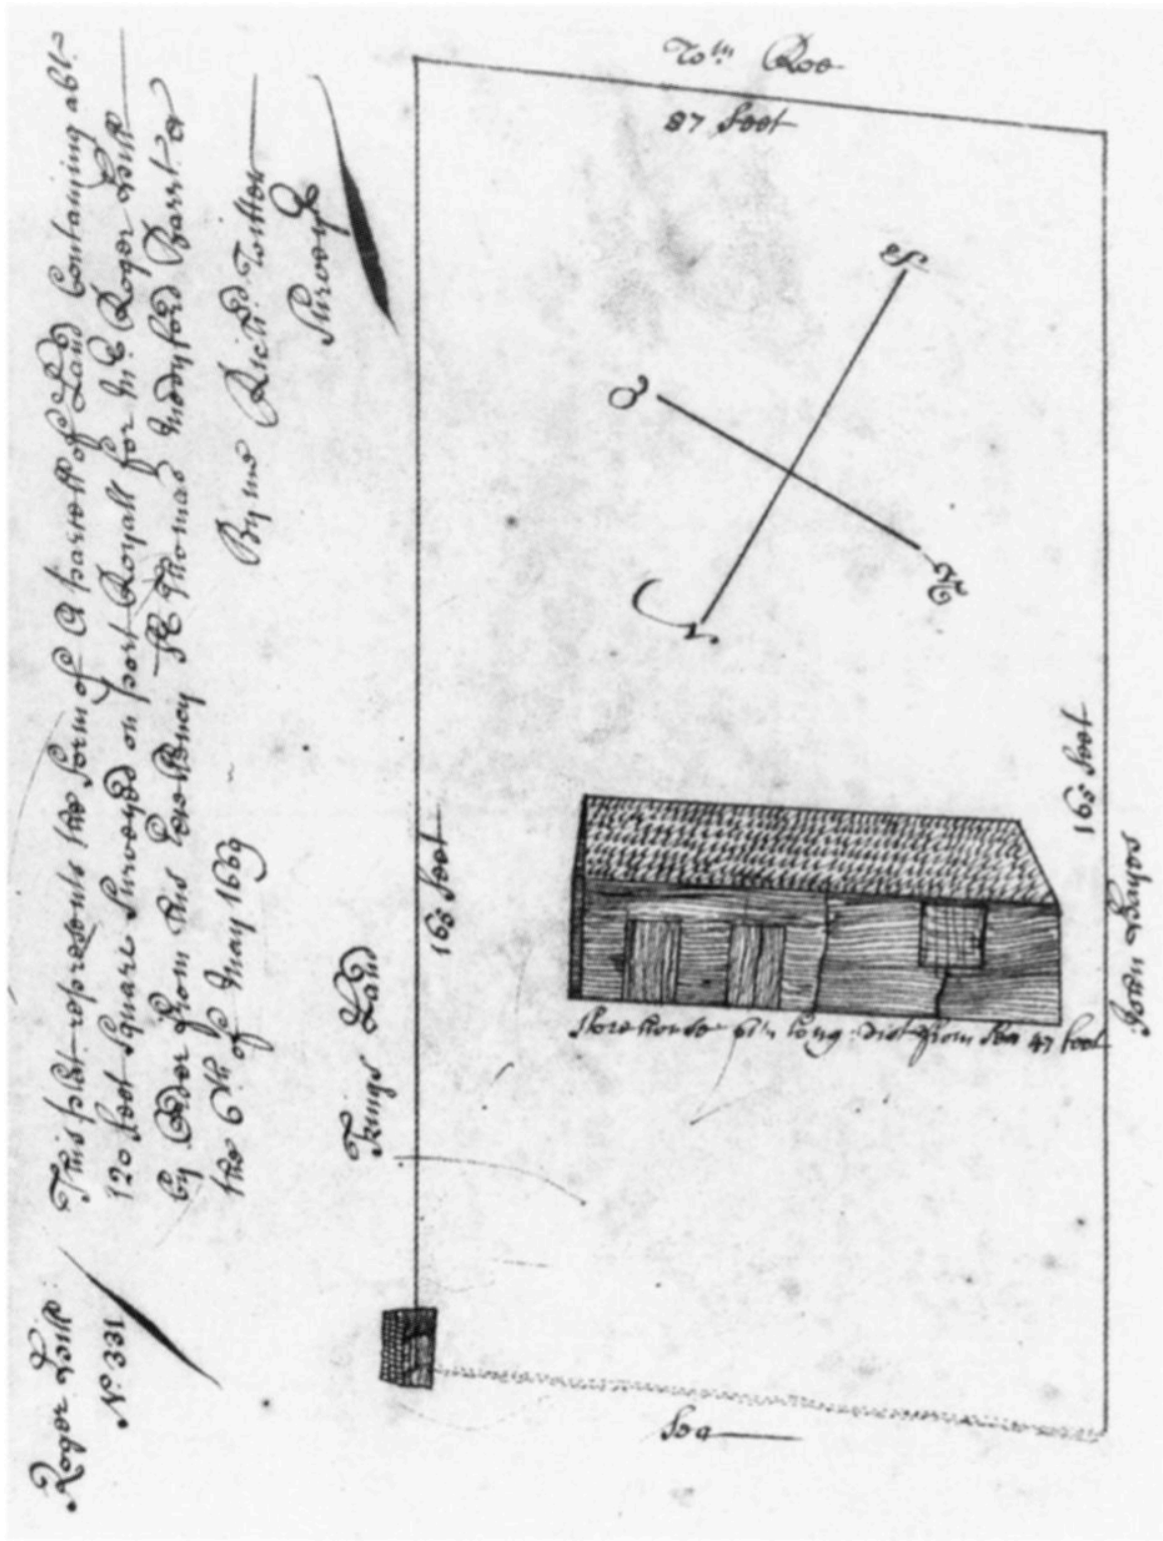 Roger
No: 331
This plat represents the form of A parcell of Land Containing abt.
120 foot square Surveyed on port Royall for Mr. Roger
by Order from his Excellency Sr Thomas Modyford Barrt. &
the 6th of May 1669
By me Richd.
Survey
Tom Roe
87 foot
S
O
E
168 foot
168 foot
Kings Land
Storehouse long dist from Sea 47 foot
Sea